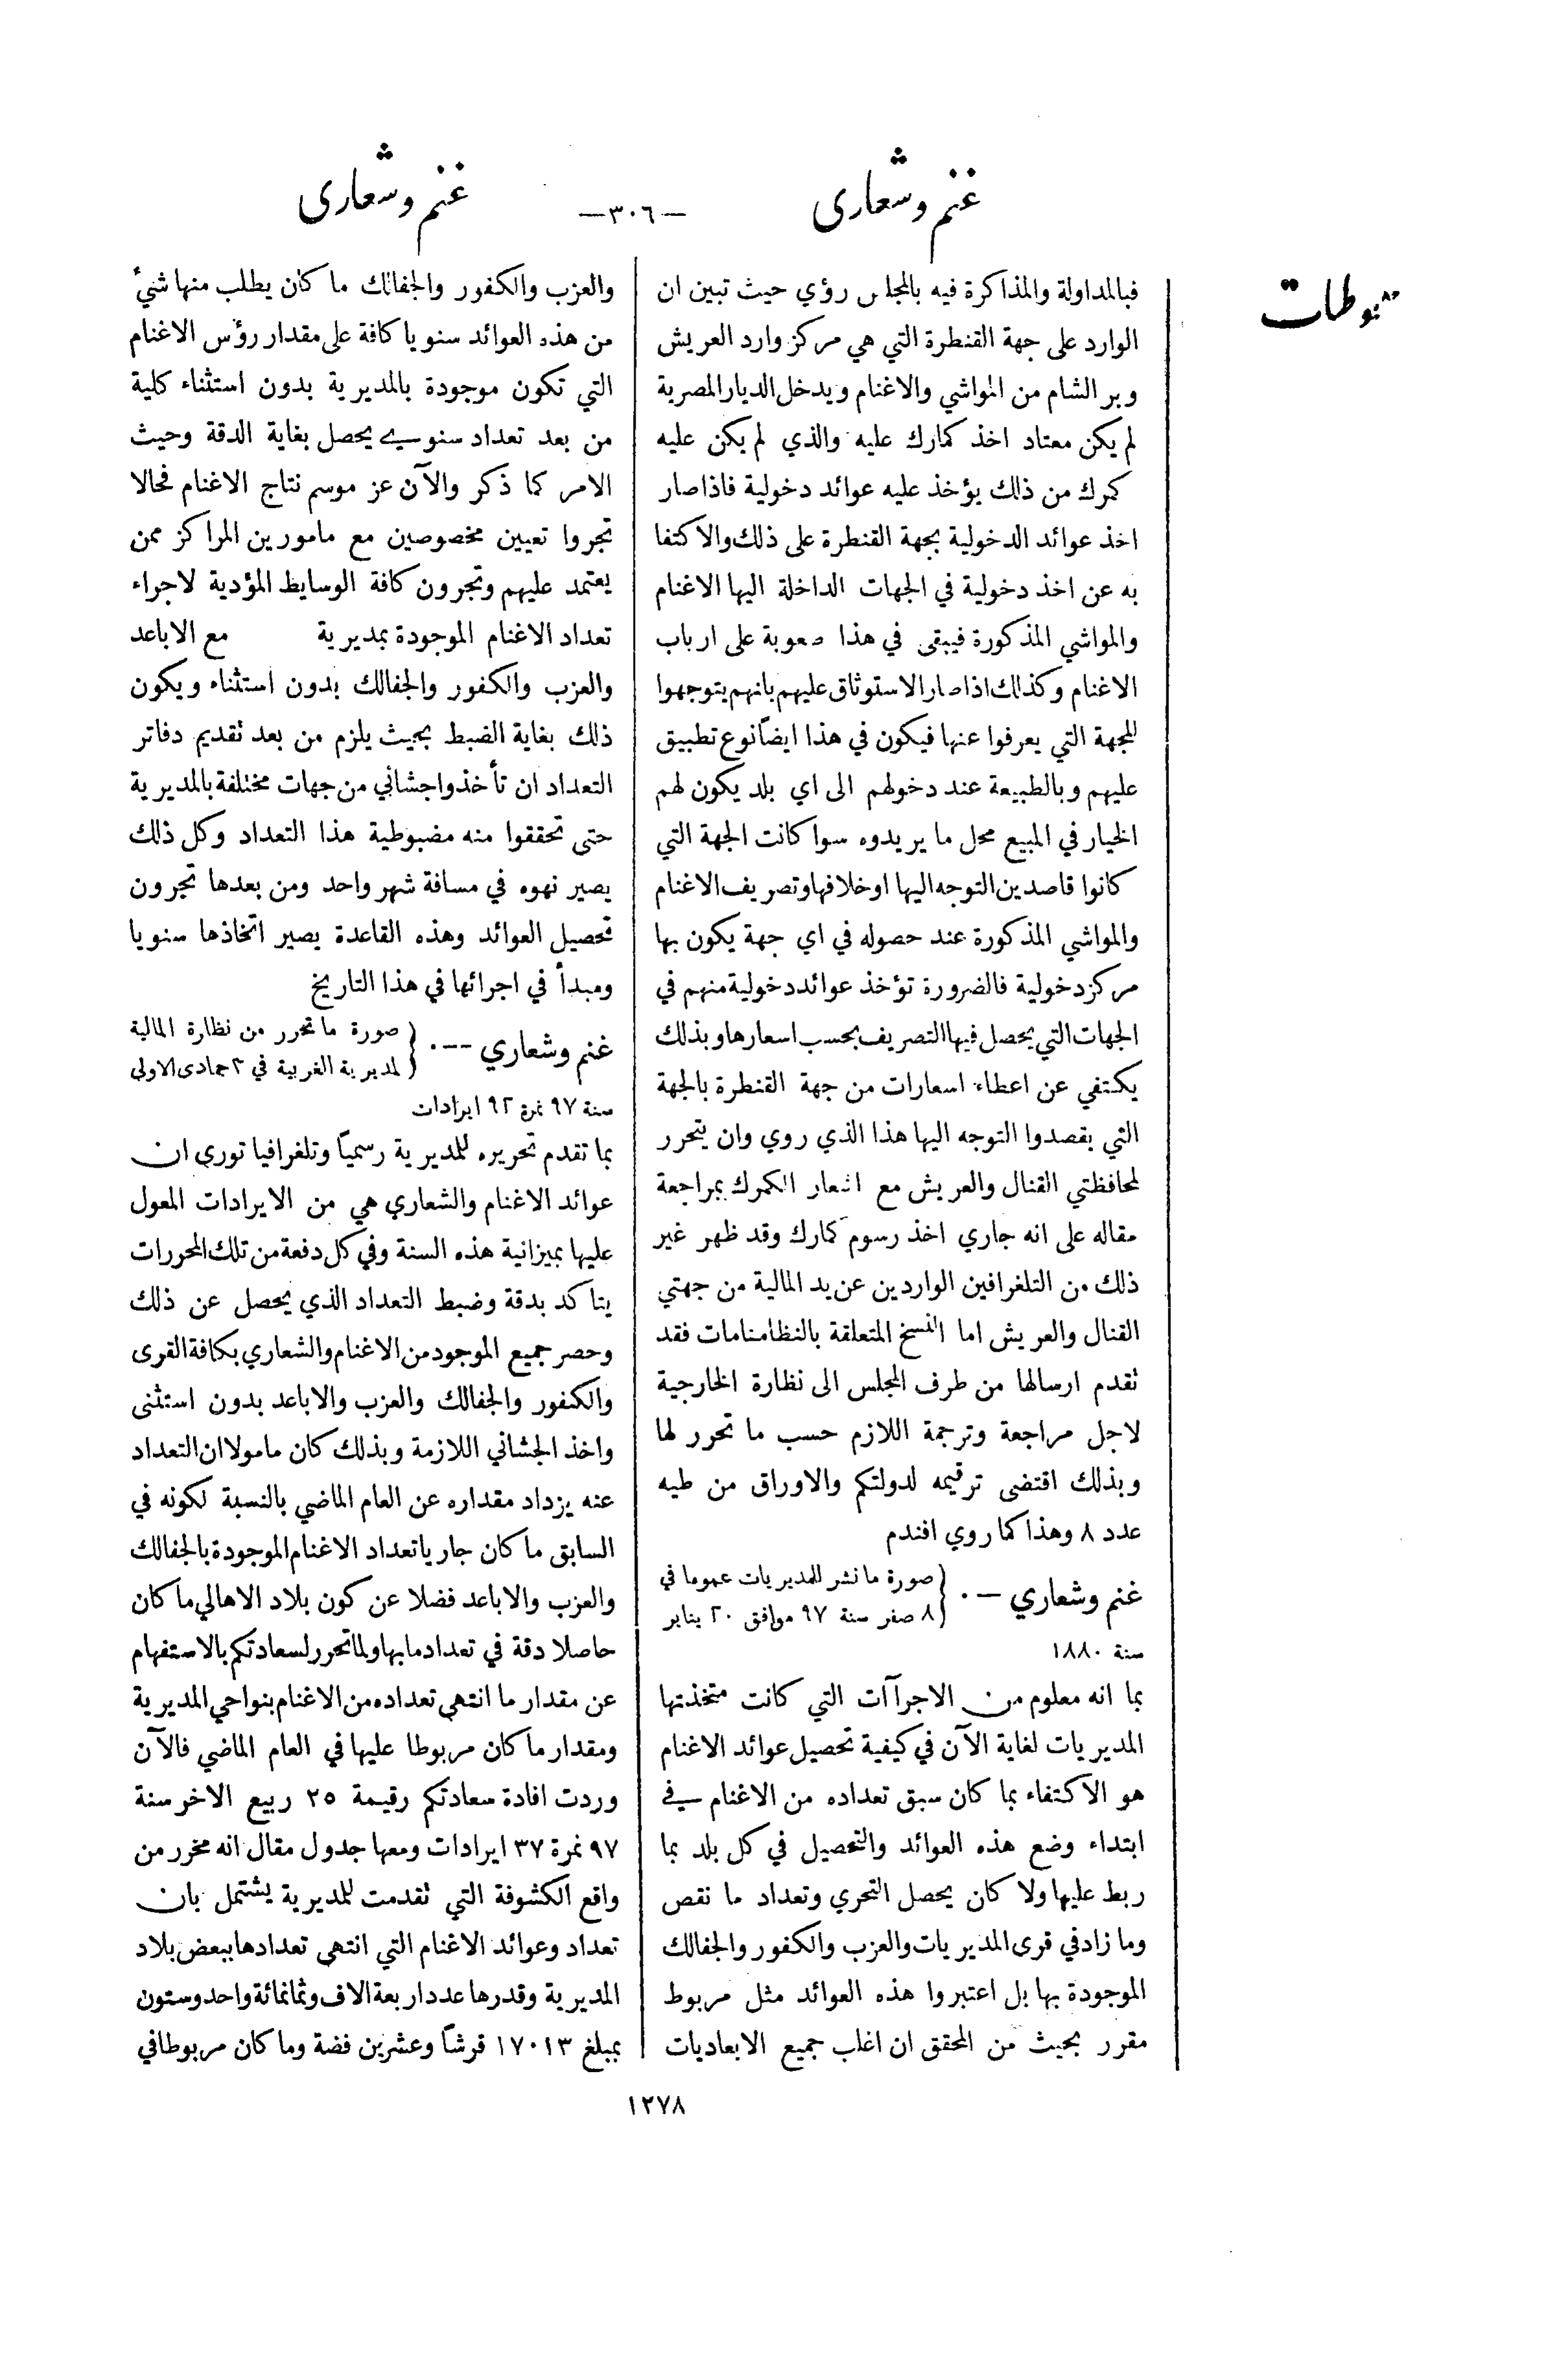 غنم وشعارى
—٣٠٦—
غنم وشعارى
فبالمداولة والمذاكرة فيه بالمجلس رؤي حيث تبين ان
الوارد على جهة القنطرة التي هي مركز وارد العريش
وبر الشام من المواشي والاغنام ويدخل الديار المصرية
لم يكن معتاد اخذ كمارك عليه والذي لم يكن عليه
كمرك من ذلك يؤخذ عليه عوائد دخولية فاذا صار
اخذ عوائد الدخولية بجهة القنطرة على ذلك والاكتفا
به عن اخذ دخولية في الجهات الداخلة اليها الاغنام
والمواشي المذكورة فيبقى في هذا صعوبة على ارباب
الاغنام وكذلك اذا صار الاستوثاق عليهم بانهم يتوجهوا
للجهة التي يعرفوا عنها فيكون في هذا ايضاً نوع تطبيق
عليهم وبالطبيعة عند دخولهم الى اي بلد يكون لهم
الخيار في المبيع محل ما يريدوه سوا كانت الجهة التي
كانوا قاصدين التوجه اليها او خلافها وتصريف الاغنام
والمواشي المذكورة عند حصوله في اي جهة يكون بها
مركز دخولية فالضرورة تؤخذ عوائد دخولية منهم في
الجهات التي يحصل فيها التصريف بحسب اسعارها وبذلك
يكتفي عن اعطاء اسعارات من جهة القنطرة بالجهة
التي يقصدوا التوجه اليها هذا الذي روي وان يتحرر
لمحافظتي القنال والعريش مع اشعار الكمرك بمراجعة
مقاله على انه جاري اخذ رسوم كمارك وقد ظهر غير
ذلك من التلغرافين الواردين عن يد المالية من جهتي
القنال والعريش اما النسخ المتعلقة بالنظامنامات فقد
تقدم ارسالها من طرف المجلس الى نظارة الخارجية
لاجل مراجعة وترجمة اللازم حسب ما تحرر لها
وبذلك اقتضى ترقيمه لدولتكم والاوراق من طيه
عدد ٨ وهذا كما روي افندم
غنم وشعاري —٠ { صورة ما نشر للمديريات عموما في
٨ صفر سنة ٩٧ موافق ٢٠ يناير
سنة ١٨٨٠
بما انه معلوم من الاجراآت التي كانت متخذتها
المديريات لغاية الآن في كيفية تحصيل عوائد الاغنام
هو الاكتفاء بما كان سبق تعداده من الاغنام في
ابتداء وضع هذه العوائد والتحصيل في كل بلد بما
ربط عليها ولا كان يحصل التحري وتعداد ما نقص
وما زاد في قرى المديريات والعزب والكفور والجفالك
الموجودة بها بل اعتبروا هذه العوائد مثل مربوط
مقرر بحيث من المحقق ان اغلب جميع الابعاديات
والعزب والكفور والجفالك ما كان يطلب منها شيءٌ
من هذه العوائد سنويا كافة على مقدار رؤس الاغنام
التي تكون موجودة بالمديرية بدون استثناء كلية
من بعد تعداد سنوي يحصل بغاية الدقة وحيث
الامر كما ذكر والآن عز موسم نتاج الاغنام فحالا
تجروا تعيين مخصوصين مع مامورين المراكز ممن
يعتمد عليهم وتجرون كافة الوسايط المؤدية لاجراء
تعداد الاغنام الموجودة بمديرية مع الاباعد
والعزب والكفور والجفالك بدون استثناء ويكون
ذلك بغاية الضبط بحيث يلزم من بعد تقديم دفاتر
التعداد ان تأخذوا جشاني من جهات مختلفة بالمديرية
حتى تحققوا منه مضبوطية هذا التعداد وكل ذلك
يصير نهوه في مسافة شهر واحد ومن بعدها تجرون
تحصيل العوائد وهذه القاعدة يصير اتخاذها سنويا
ومبدأ في اجرائها في هذا التاريخ
غنم وشعاري --٠ { صورة ما تحرر من نظارة المالية
لمديرية الغربية في ٢ جمادى الاولى
سنة ٩٧ نمرة ٩٢ ايرادات
بما تقدم تحريره للمديرية رسمياً وتلغرافيا تورى ان
عوائد الاغنام والشعاري هي من الايرادات المعول
عليها بميزانية هذه السنة وفي كل دفعة من تلك المحررات
يتاكد بدقة وضبط التعداد الذي يحصل عن ذلك
وحصر جميع الموجود من الاغنام والشعاري بكافة القرى
والكفور والجفالك والعزب والاباعد بدون استثنى
واخذ الجشاني اللازمة وبذلك كان مامولا ان التعداد
عنه يزداد مقداره عن العام الماضي بالنسبة لكونه في
السابق ما كان جاريا تعداد الاغنام الموجودة بالجفالك
والعزب والاباعد فضلا عن كون بلاد الاهالي ما كان
حاصلا دقة في تعداد ما بها ولما تحرر لسعادتكم بالاستفهام
عن مقدار ما انتهى تعداده من الاغنام بنواحي المديرية
ومقدار ما كان مربوطا عليها في العام الماضي فالآن
وردت افادة سعادتكم رقيمة ٢٥ ربيع الاخر سنة
٩٧ نمرة ٣٧ ايرادات ومعها جدول مقال انه محرر من
واقع الكشوفة التي تقدمت للمديرية يشتمل بان
تعداد وعوائد الاغنام التي انتهى تعدادها ببعض بلاد
المديرية وقدرها عدد اربعة الاف وثمانمائة واحد وستون
بمبلغ ١٧٠١٣ قرشاً وعشرين فضة وما كان مربوطا في
١٢٧٨